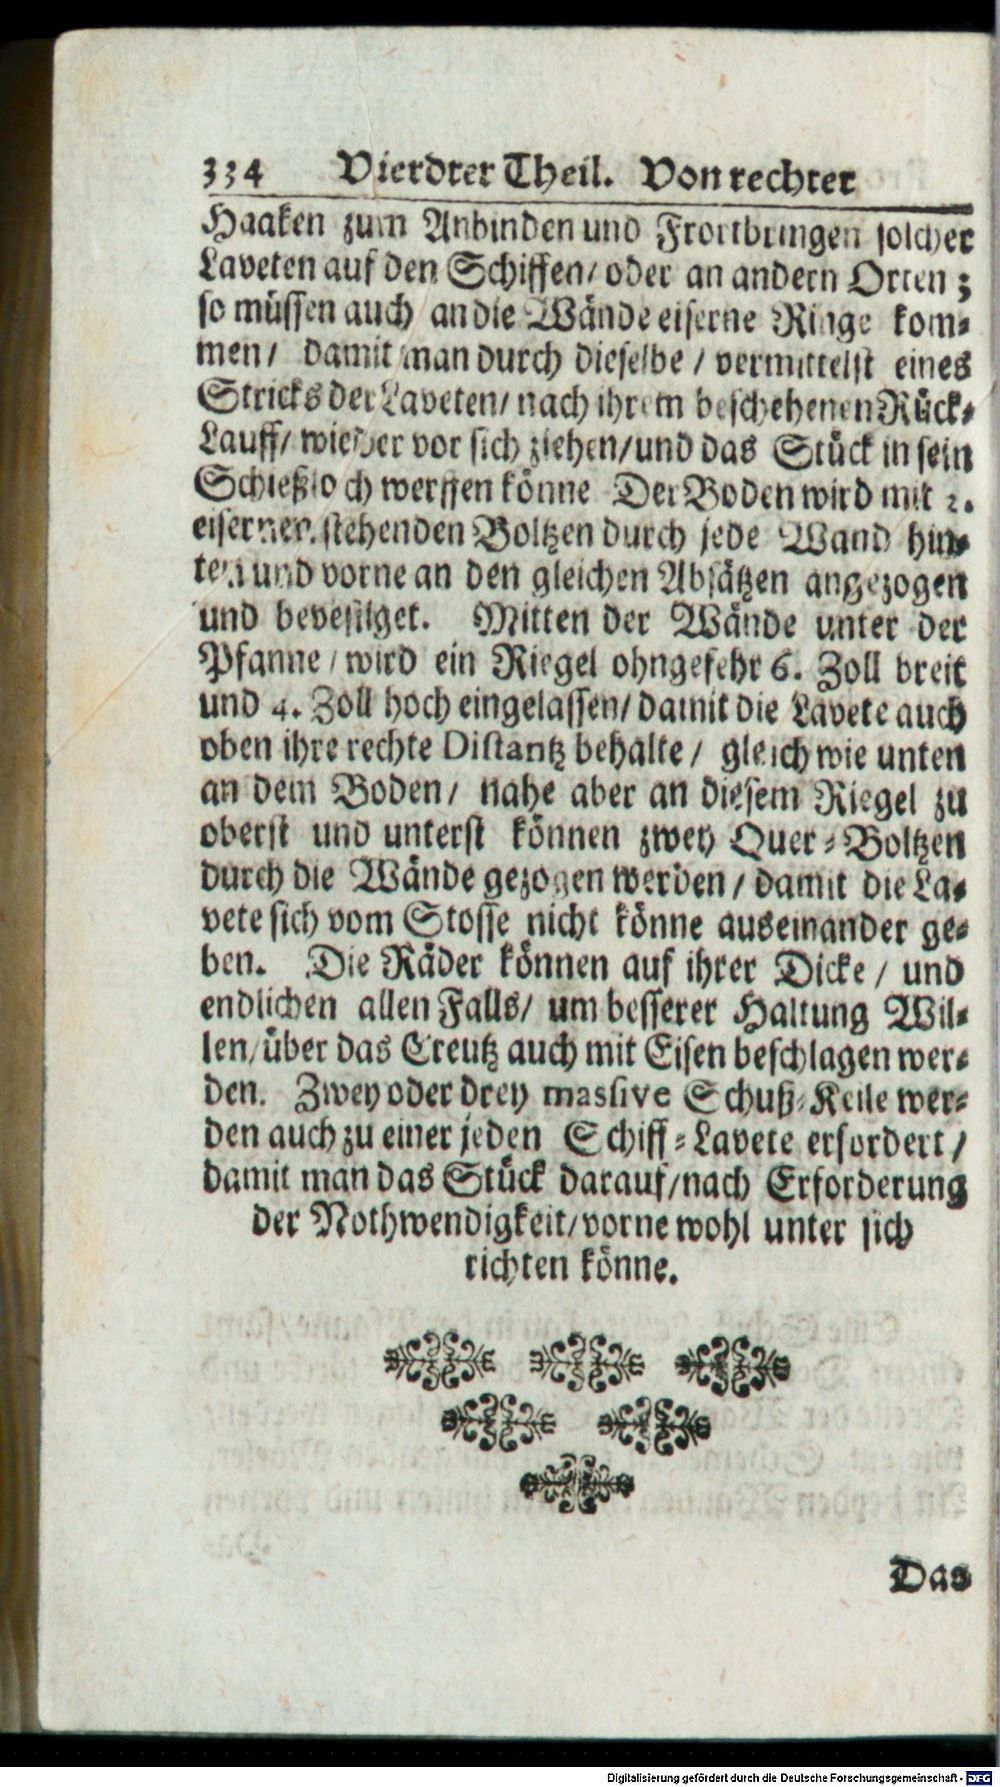 334 Vierdter Theil. Von rechter
Haaken zum Anbinden und Frortbringen solcher
Laveten auf den Schiffen/ oder an andern Orten;
so müssen auch an die Wände eiserne Ringe kom-
men/ damit man durch dieselbe / vermittelst eines
Stricks der Laveten/ nach ihrem beschehenen Rück-
Lauff/ wieder vor sich ziehen/und das Stück in sein
Schießloch werffen könne Der Boden wird mit 2.
eisernen stehenden Boltzen durch jede Wand hin-
ten und vorne an den gleichen Absätzen angezogen
und bevestiget. Mitten der Wände unter der
Pfanne / wird ein Riegel ohngefehr 6. Zoll breit
und 4. Zoll hoch eingelassen/ damit die Lavete auch
oben ihre rechte Distantz behalte / gleich wie unten
an dem Boden/ nahe aber an diesem Riegel zu
oberst und unterst können zwey Quer-Boltzen
durch die Wände gezogen werden / damit die La-
vete sich vom Stosse nicht könne auseinander ge-
ben. Die Räder können auf ihrer Dicke / und
endlichen allen Falls/ um besserer Haltung Wil-
len/über das Creutz auch mit Eisen beschlagen wer-
den. Zwey oder drey massive Schuß-Keile wer-
den auch zu einer jeden Schiff-Lavete erfordert /
damit man das Stück darauf/nach Erforderung
der Nothwendigkeit/vorne wohl unter sich
richten könne.
Das
Digitalisierung gefördert durch die Deutsche Forschungsgemeinschaft - DFG